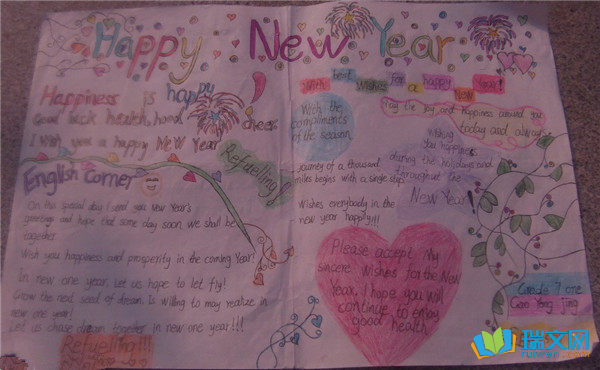 Happy New Year
Happiness is happy
Good luck, health, hood cheer.
I wish you a happy New Year
Refuelling!
English Corner
On this special day I send you New Year's
greetings and hope that some day soon, we shall be
together.
Wish you happiness and prosperity in the coming Year!
In new one year. Let us hope to let fly!
Grow the next seed of dream. Is willing to may realize in
new one year!
Let us chase dream together in new one year!!!
Refuelling!!!
With best wishes for a happy new year!
May the joy and happiness around you
today and always
With the
compliments
of the season.
Wishing
you happiness
during the holidays and
throughout the
New Year!
Journey of a thousand
miles begins with a single step
Wishes everybody in the
new year happily!!!
Please accept My
sincere wishes for the New
Year. I hope you will
continue to enjoy
good health
Grade 7 one
Gao Yong jing
瑞文网
ruiwen.com